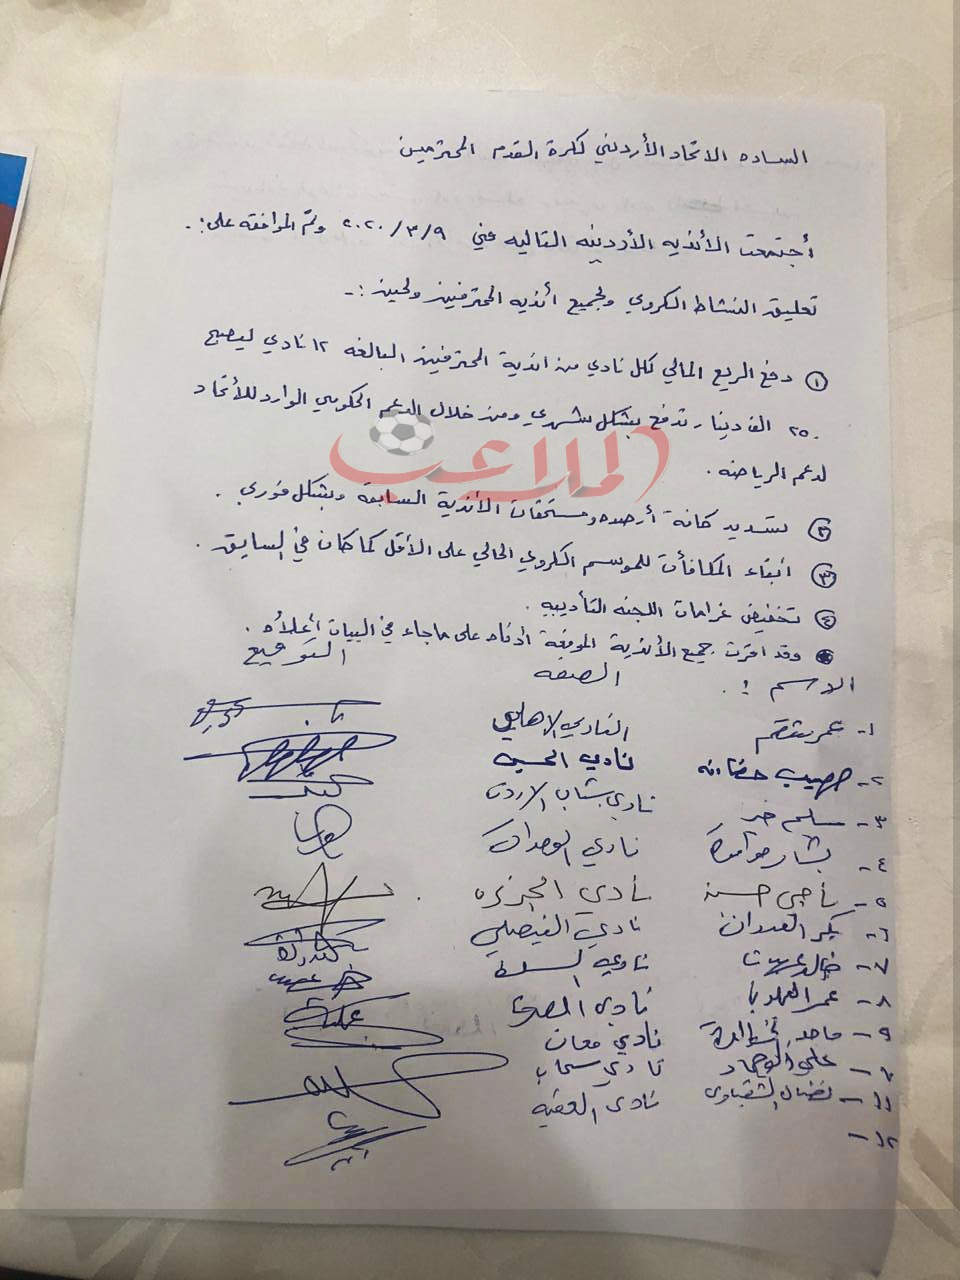 الساده الاتحاد الأردني لكرة القدم المحترمين
أجتمعت الأنديه الأردنيه التاليه في ٢٠٢٠/٣/٩ وتم الموافقه على :.
تعليق النشاط الكروي ولجميع أنديه المحترفين ولحين :-
١ دفع الريع المالي لكل نادي من اندية المحترفين البالغه ١٢ نادي ليصبح
٢٥٠ الف دينار تدفع بشكل شهري ومن خلال الدعم الحكومي الوارد للأتحاد
لدعم الرياضه .
الملاعب
٢ تسديد كافة أرصده ومستحقات الأندية السابقة وبشكل فوري .
٣ ابقاء المكافأت للموسم الكروي الحالي على الأقل كما كان في السابق .
٤ تخفيض غرامات اللجنه التأديبيه .
وقد اقرت جميع الأندية الموقعة أدناه على ما جاء في البيان أعلاه .
الاسم : الصفه التوقيع
١- عمر النادي الاهلي
٢- صهيب نادي الحسين
٣- سليم خير نادي شباب الاردن
٤- بشار حوامدة نادي الوحدات
٥- ناجي حسن نادي الجزيره
٦- بكر العدوان نادي الفيصلي
٧- خالد عربيات نادي السلط
٨- عمر نادي
٩- ماجد نادي معان
علي نادي سحاب
١١- نضال نادي العقبه
١٢-